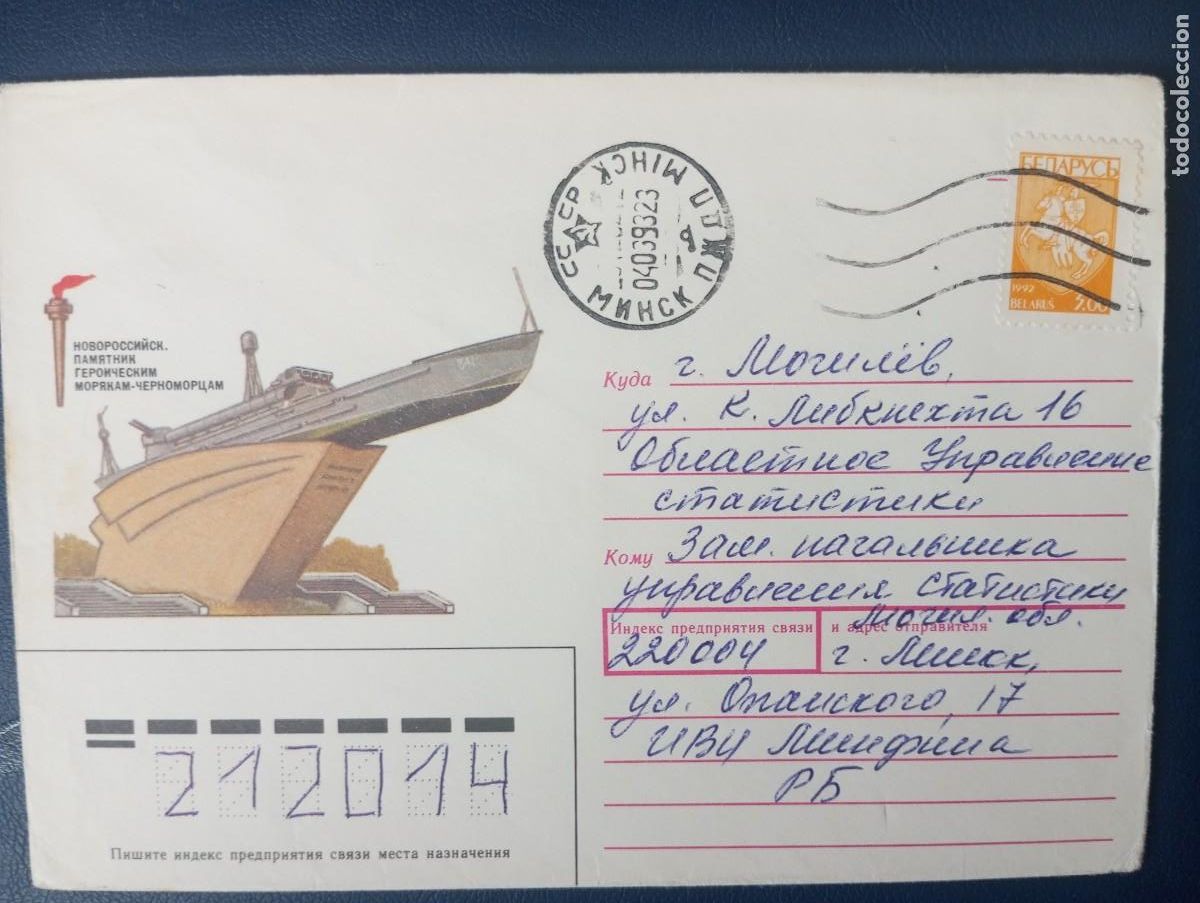 НОВОРОССИЙСК.
ПАМЯТНИК
ГЕРОИЧЕСКИМ
МОРЯКАМ-ЧЕРНОМОРЦАМ
СССР МІНСК ПЖДП
04039323
МИНСК
БЕЛАРУСЬ
1992
BELARUS 3.00
Куда г. Могилёв,
ул. К. Либкнехта 16
Областное Управление
статистики
Кому Зам. начальника
управления статистики
Могил. обл.
Индекс предприятия связи и адрес отправителя
220004 г. Минск,
ул. 17
ИВЦ Минфина
РБ
212014
Пишите индекс предприятия связи места назначения
todocoleccion